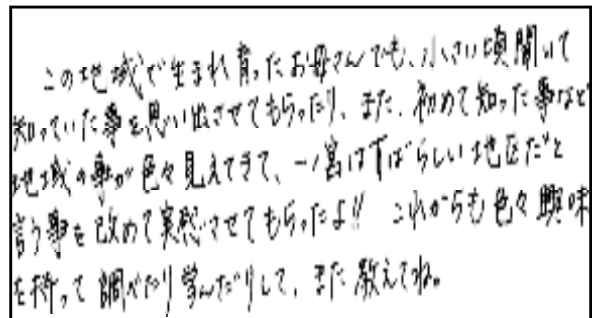 この地域で生まれ育ったお母さんでも、小さい頃聞いて
知っていた事を思い出させてもらったり、また、初めて知った事など
地域の事が色々見えてきて、一ノ宮はすばらしい地区だと
言う事を改めて実感させてもらったよ!! これからも色々興味
を持って調べたり学んだりして、また教えてね。